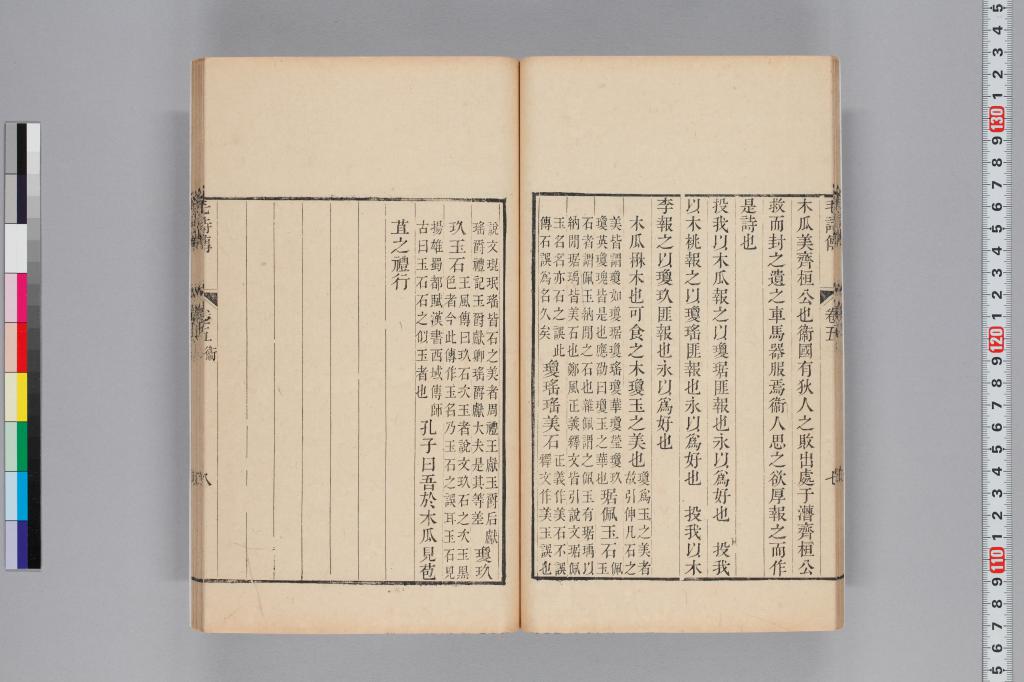 木瓜美齊桓公也衞國有狄人之敗出處于漕齊桓公
救而封之遺之車馬器服焉衞人思之欲厚報之而作
是詩也
投我以木瓜報之以瓊琚匪報也永以爲好也 投我
以木桃報之以瓊瑤匪報也永以爲好也 投我以木
李報之以瓊玖匪報也永以爲好也
木瓜楙木也可食之木瓊玉之美也瓊爲玉之美者
故引伸凡石之
美皆謂瓊如瓊琚瓊瑤瓊華瓊瑩瓊玖
瓊英瓊瑰皆是也應劭曰瓊玉之華也琚佩玉石佩玉
石者謂佩玉納閒之石也雜佩謂之佩玉有琚瑀以
納閒琚瑀皆美石也鄭風正義釋文皆引說文琚佩
玉名名亦石之誤此
傳石誤爲名久矣瓊瑤瑤美石正義作美石不誤
釋文作美玉誤也
說文琨珉瑤皆石之美者周禮王獻玉爵后獻
瑤爵禮記玉爵獻卿瑤爵獻大夫是其等差瓊玖
玖玉石王風傳曰玖石次玉者說文玖石之次玉黑
色者今此傳作玉名乃玉石之誤耳玉石見
揚雄蜀都賦漢書西域傳師
古曰玉石石之似玉者也孔子曰吾於木瓜見苞
苴之禮行
毛詩傳
卷五
七
毛詩傳
卷五 衞
八